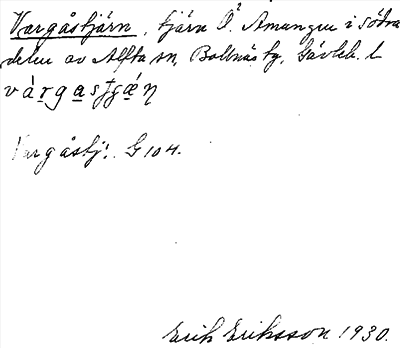 Vargåstjärn, tjärn Ö. Amungen i södra
delen av Alfta sn, Bollnäs tg, Gävleb. l
vàrgastjæ̀ɳ
Vargåstj. G 104.
Erik Eriksson 1930.